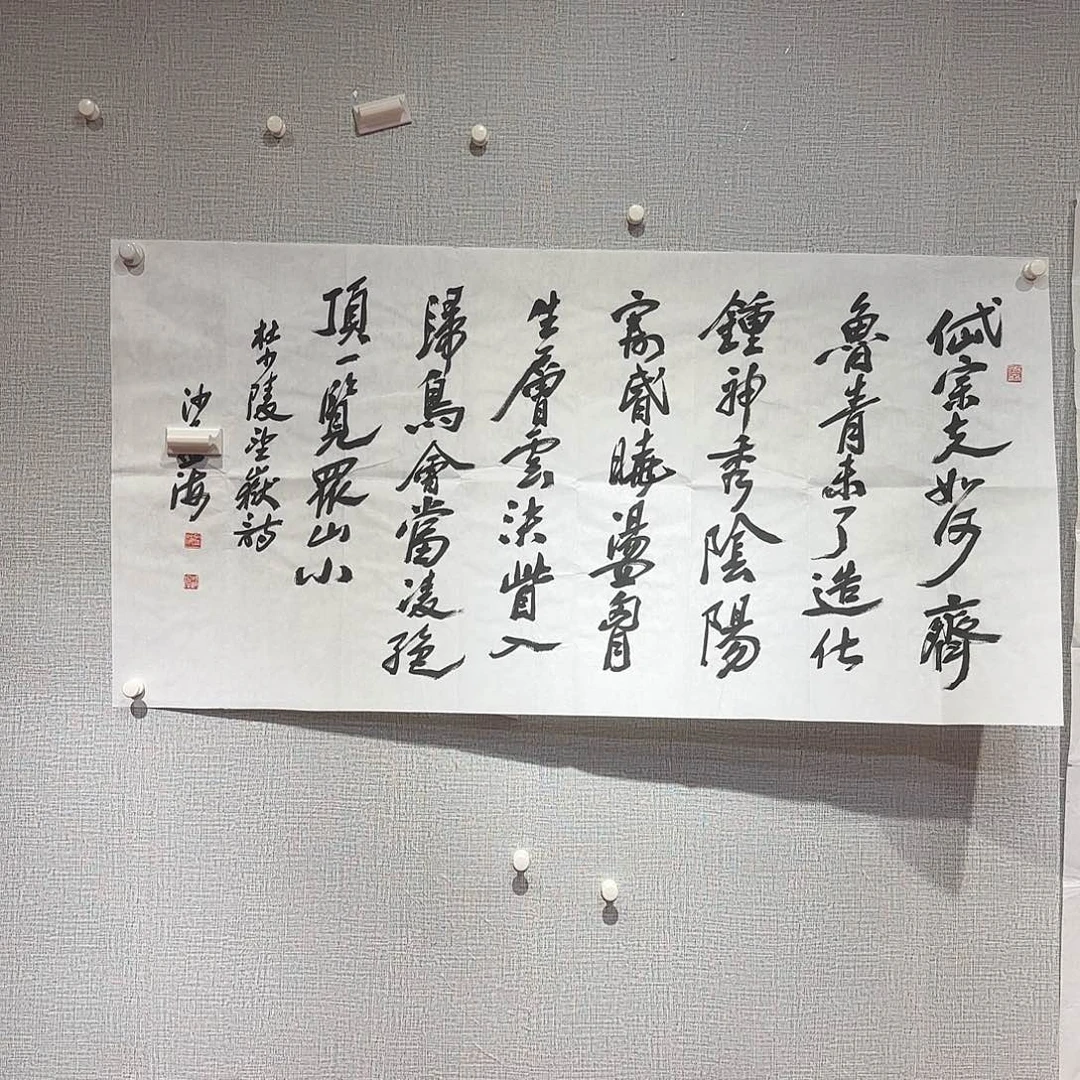 岱宗夫如何齊
魯青未了造化
鍾神秀陰陽
割昏曉盪胷
生層雲決眥入
歸鳥會當凌絕
頂一覽眾山小
杜少陵望嶽詩
沙海